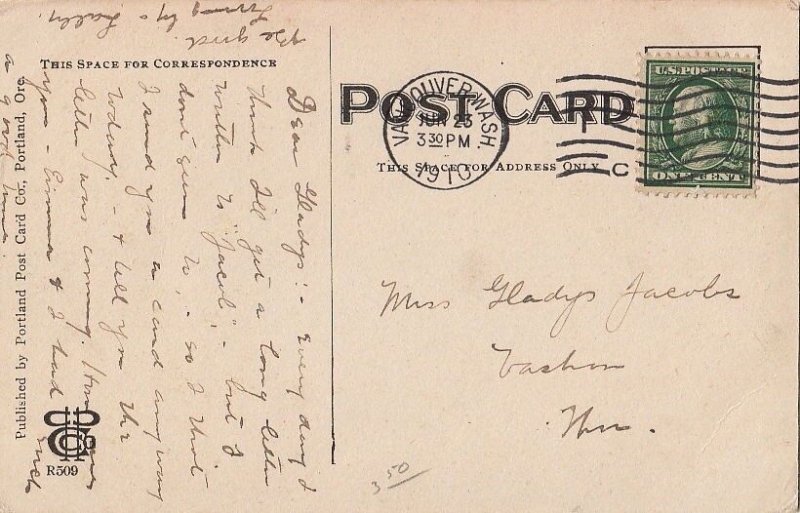 THIS SPACE FOR CORRESPONDENCE
POST CARD
THIS SPACE FOR ADDRESS ONLY
VANCOUVER, WASH
JUN 23
3 30 PM
1910
C
U.S. POSTAGE
ONE CENT
Miss Gladys Jacobs
Vashon
Wn.
350
Dear Gladys:- Every day I
think I'll get a long letter
written to "Jacob", - but I
don't seem to, - so I thot
I send you a card anyway
today - & tell you the
letter was coming. How
you - Emma & I had such
a good time.
Be good.
Lovingly -
Published by Portland Post Card Co., Portland, Ore.
R509